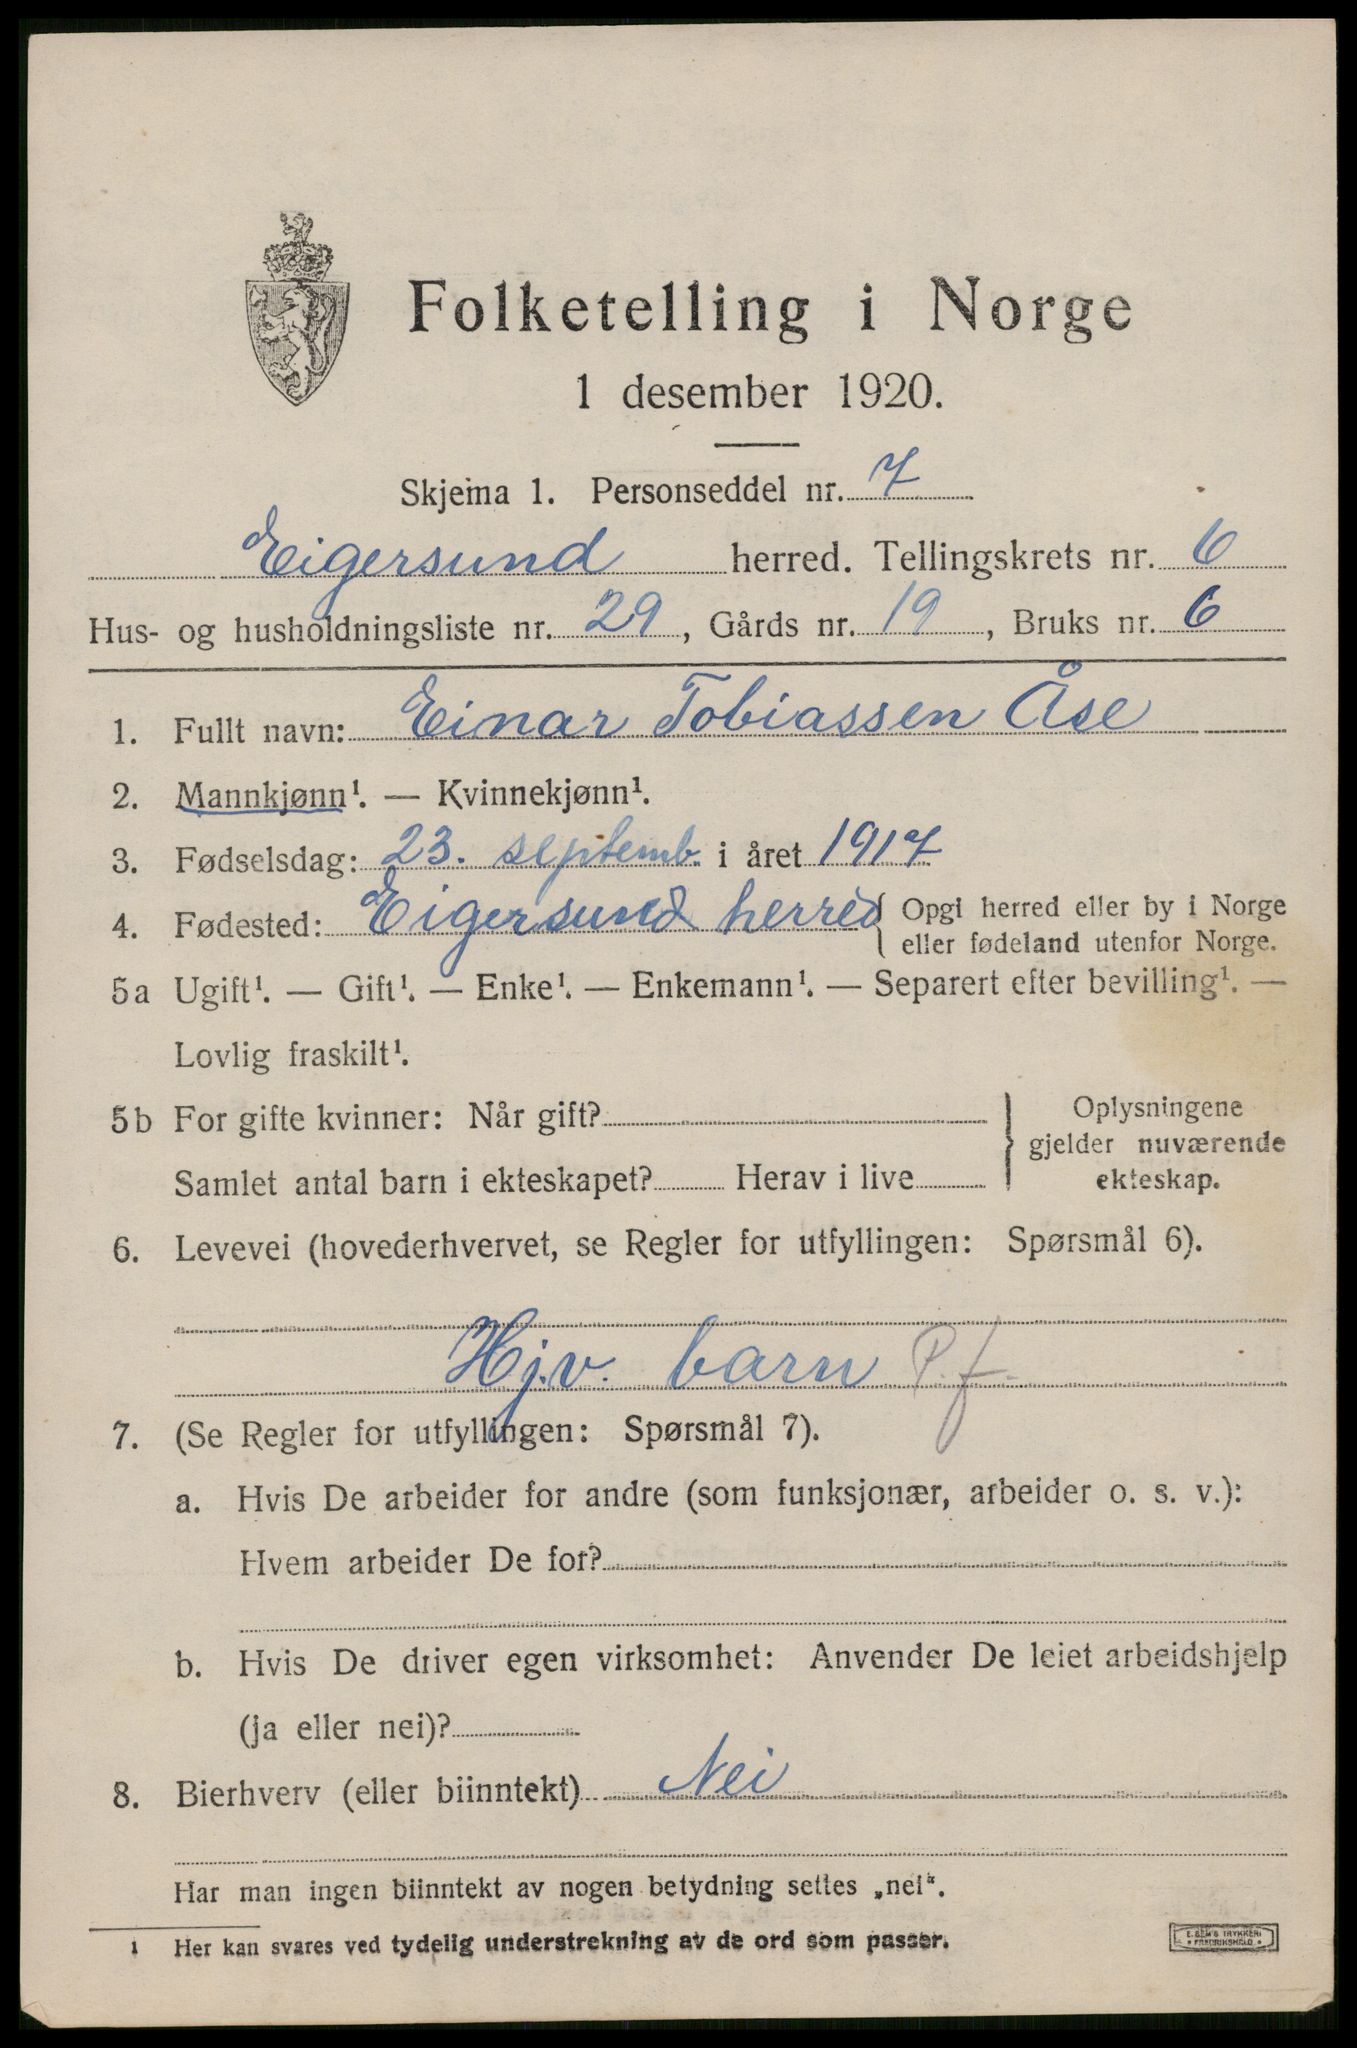 Folketelling i Norge
1 desember 1920.
Skjema 1. Personseddel nr. 7
Eigersund herred. Tellingskrets nr. 6
Hus- og husholdningsliste nr. 29, Gårds nr. 19, Bruks nr. 6
1. Fullt navn: Einar Tobiassen Åse
2. Mannkjønn¹. — Kvinnekjønn¹.
3. Fødselsdag: 23. septemb. i året 1917
4. Fødested: Eigersund herred { Opgi herred eller by i Norge
eller fødeland utenfor Norge.
5a Ugift¹. — Gift¹. — Enke¹. — Enkemann¹. — Separert efter bevilling¹. —
Lovlig fraskilt¹.
5b For gifte kvinner: Når gift? } Oplysningene
gjelder nuværende
Samlet antal barn i ekteskapet? Herav i live ekteskap.
6. Levevei (hovederhvervet, se Regler for utfyllingen: Spørsmål 6).
Hj.v. barn P.f.
7. (Se Regler for utfyllingen: Spørsmål 7).
a. Hvis De arbeider for andre (som funksjonær, arbeider o. s. v.):
Hvem arbeider De for?
b. Hvis De driver egen virksomhet: Anvender De leiet arbeidshjelp
(ja eller nei)?
8. Bierhverv (eller biinntekt) Nei
Har man ingen biinntekt av nogen betydning settes „nei“.
1 Her kan svares ved tydelig understrekning av de ord som passer.
E. SEM'S TRYKKERI
* FREDRIKSHALD *